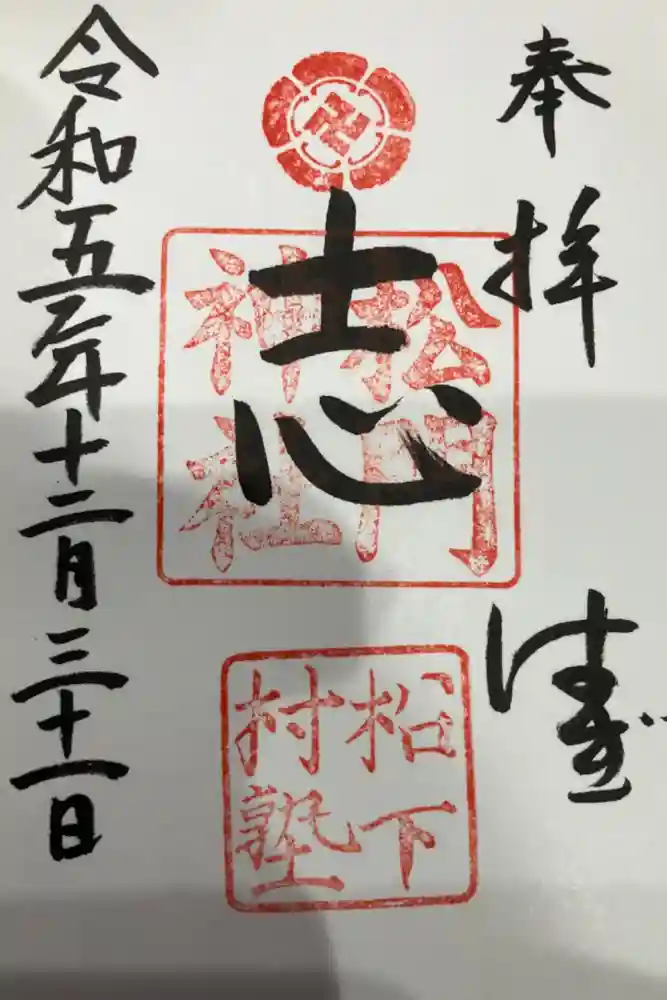 奉拝
志
松門
神社
松下
村塾
令和五年十二月三十一日